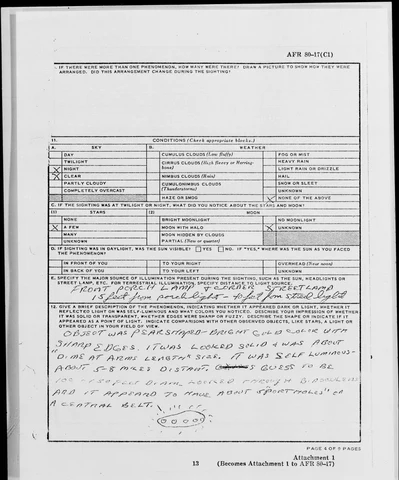 AFR 80-17(C1)
. IF THERE WERE MORE THAN ONE PHENOMENON, HOW MANY WERE THERE? DRAW A PICTURE TO SHOW HOW THEY WERE
ARRANGED. DID THIS ARRANGEMENT CHANGE DURING THE SIGHTING?
11. CONDITIONS (Check appropriate blocks.)
A. SKY B. WEATHER
DAY CUMULUS CLOUDS (Low fluffy) FOG OR MIST
TWILIGHT CIRRUS CLOUDS (High fleecy or Herring-bone) HEAVY RAIN
X NIGHT LIGHT RAIN OR DRIZZLE
X CLEAR NIMBUS CLOUDS (Rain) HAIL
PARTLY CLOUDY CUMULONIMBUS CLOUDS (Thunderstorms) SNOW OR SLEET
COMPLETELY OVERCAST UNKNOWN
HAZE OR SMOG X NONE OF THE ABOVE
C. IF THE SIGHTING WAS AT TWILIGHT OR NIGHT, WHAT DID YOU NOTICE ABOUT THE STARS AND MOON?
(1) STARS (2) MOON
NONE BRIGHT MOONLIGHT NO MOONLIGHT
X A FEW MOON WITH HALO X UNKNOWN
MANY MOON HIDDEN BY CLOUDS
UNKNOWN PARTIAL (New or quarter)
D. IF SIGHTING WAS IN DAYLIGHT, WAS THE SUN VISIBLE? YES NO. IF "YES," WHERE WAS THE SUN AS YOU FACED
THE PHENOMENON?
IN FRONT OF YOU TO YOUR RIGHT OVERHEAD (Near noon)
IN BACK OF YOU TO YOUR LEFT UNKNOWN
E. SPECIFY THE MAJOR SOURCE OF ILLUMINATION PRESENT DURING THE SIGHTING, SUCH AS THE SUN, HEADLIGHTS OR
STREET LAMP, ETC. FOR TERRESTRIAL ILLUMINATION, SPECIFY DISTANCE TO LIGHT SOURCE.
FRONT PORCH LAMP & CORNER STREETLAMP
15 feet from porch light - 70 feet from street light
12. GIVE A BRIEF DESCRIPTION OF THE PHENOMENON, INDICATING WHETHER IT APPEARED DARK OR LIGHT, WHETHER IT
REFLECTED LIGHT OR WAS SELF-LUMINOUS AND WHAT COLORS YOU NOTICED. DESCRIBE YOUR IMPRESSION OF WHETHER
IT WAS SOLID OR TRANSPARENT, WHETHER EDGES WERE SHARP OR FUZZY. DESCRIBE THE SHAPE OR INDICATE IF IT
APPEARED AS A POINT OF LIGHT. INDICATE COMPARISONS WITH OTHER OBSERVED OBJECTS, LIKE STARS, A LIGHT OR
OTHER OBJECT IN YOUR FIELD OF VIEW.
OBJECT WAS PEAR SHAPED - BRIGHT GOLD COLOR WITH
"SHARP" EDGES. IT WAS LOOKED SOLID & WAS ABOUT
DIME AT ARMS LENGTH" SIZE. IT WAS SELF LUMINOUS-
ABOUT 5-8 MILES DISTANT. GUESS TO BE
LOOKED THROUGH BINOCULARS
AND IT APPEARED TO HAVE ABOUT 5 "PORTHOLES" ON
A CENTRAL BELT.
PAGE 4 OF 5 PAGES
Attachment 1
13 (Becomes Attachment 1 to AFR 80-17)